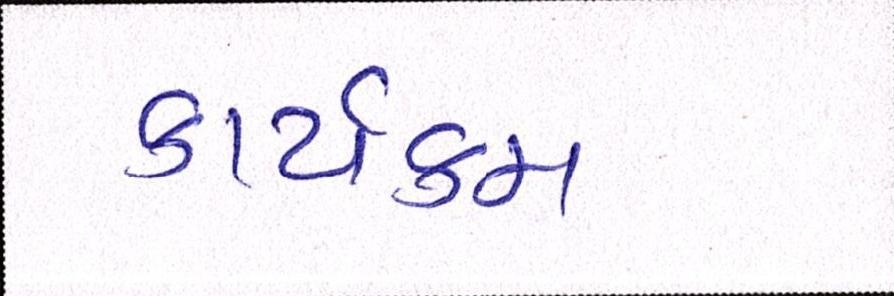 કાર્યક્રમ